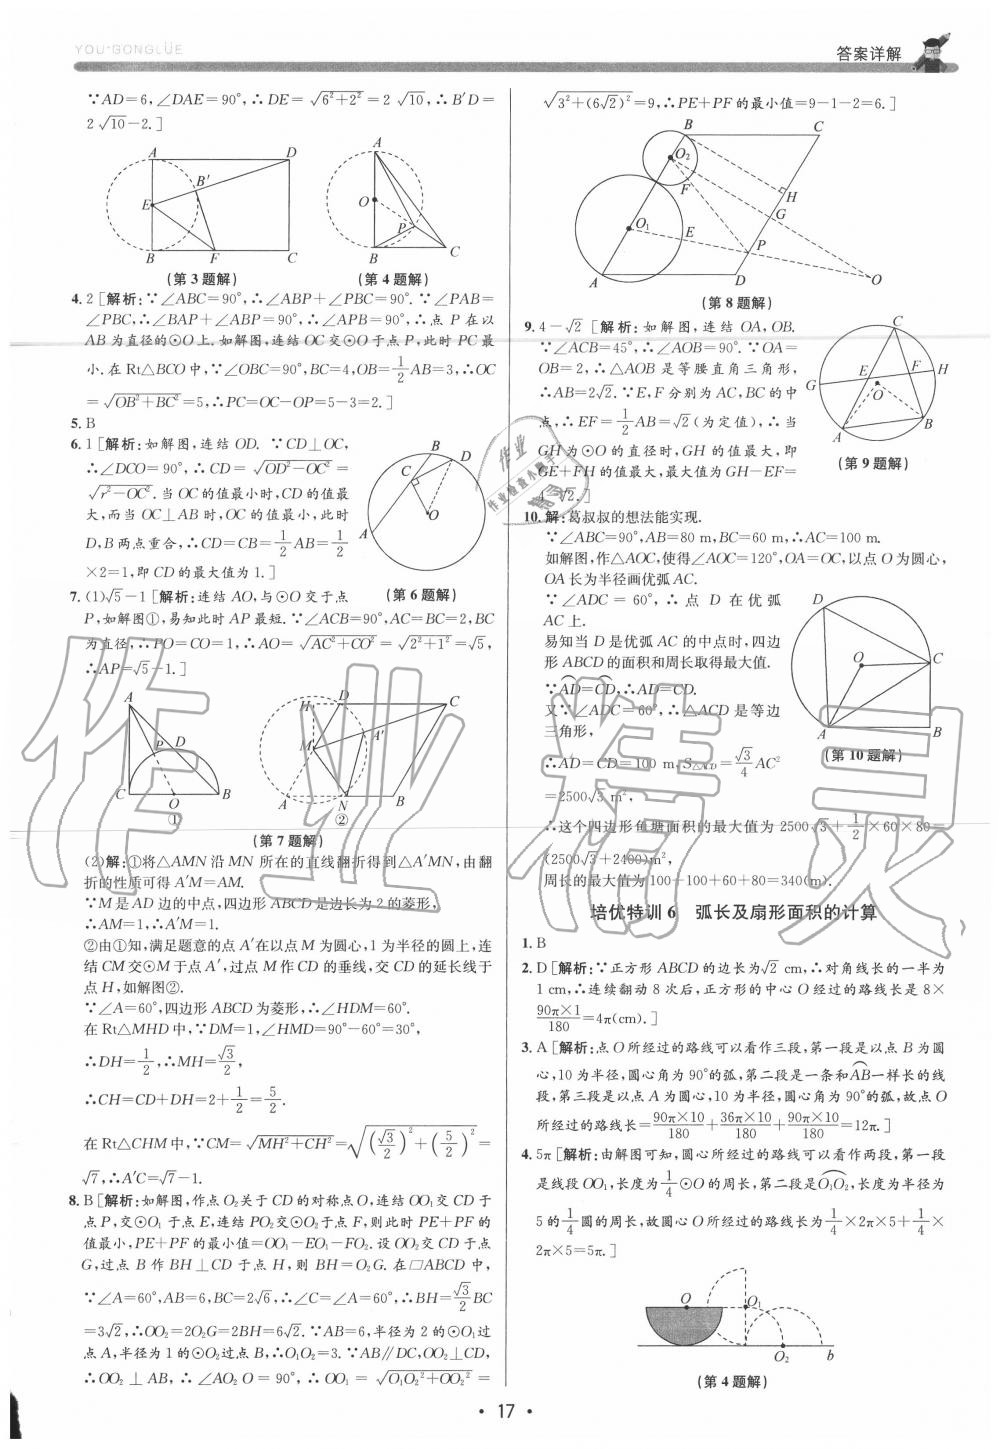 YOU·GONGLÜE
答案详解
∵AD=6,∠DAE=90°,∴DE=√(6²+2²)=2√10,∴B′D=
2√10-2.]
A D B′ E B F C
(第3题解)
A O P B C
(第4题解)
4.2[解析:∵∠ABC=90°,∴∠ABP+∠PBC=90°.∵∠PAB=
∠PBC,∴∠BAP+∠ABP=90°,∴∠APB=90°,∴点P在以
AB为直径的⊙O上.如解图,连结OC交⊙O于点P,此时PC最
小.在Rt△BCO中,∵∠OBC=90°,BC=4,OB=1/2AB=3,∴OC
=√(OB²+BC²)=5,∴PC=OC-OP=5-3=2.]
5.B
6.1[解析:如解图,连结OD. ∵CD⊥OC,
∴∠DCO=90°,∴CD=√(OD²-OC²)=
√(r²-OC²).当OC的值最小时,CD的值最
大,而当OC⊥AB时,OC的值最小,此时
D,B两点重合,∴CD=CB=1/2AB=1/2
×2=1,即CD的最大值为1.]
B D C O A
(第6题解)
7.(1)√5-1[解析:连结AO,与⊙O交于点
P,如解图①,易知此时AP最短.∵∠ACB=90°,AC=BC=2,BC
为直径,∴PO=CO=1,∴AO=√(AC²+CO²)=√(2²+1²)=√5,
∴AP=√5-1.]
A P D C O B
①
H D C A′ M A N B
②
(第7题解)
(2)解:①将△AMN沿MN所在的直线翻折得到△A′MN,由翻
折的性质可得A′M=AM.
∵M是AD边的中点,四边形ABCD是边长为2的菱形,
∴AM=1,∴A′M=1.
②由①知,满足题意的点A′在以点M为圆心,1为半径的圆上,连
结CM交⊙M于点A′,过点M作CD的垂线,交CD的延长线于
点H,如解图②.
∵∠A=60°,四边形ABCD为菱形,∴∠HDM=60°.
在Rt△MHD中,∵DM=1,∠HMD=90°-60°=30°,
∴DH=1/2,∴MH=√3/2,
∴CH=CD+DH=2+1/2=5/2.
在Rt△CHM中,∵CM=√(MH²+CH²)=√((√3/2)²+(5/2)²)=
√7,∴A′C=√7-1.
8.B[解析:如解图,作点O₂关于CD的对称点O,连结OO₁交CD于
点P,交⊙O₁于点E,连结PO₂交⊙O₂于点F,则此时PE+PF的
值最小,PE+PF的最小值=OO₁-EO₁-FO₂.设OO₂交CD于点
G,过点B作BH⊥CD于点H,则BH=O₂G.在□ABCD中,
∵∠A=60°,AB=6,BC=2√6,∴∠C=∠A=60°,∴BH=√3/2BC
=3√2,∴OO₂=2O₂G=2BH=6√2.∵AB=6,半径为2的⊙O₁过
点A,半径为1的⊙O₂过点B,∴O₁O₂=3.∵AB∥DC,OO₂⊥CD,
∴OO₂⊥AB,∴∠AO₂O=90°,∴OO₁=√(O₁O₂²+OO₂²)=
√(3²+(6√2)²)=9,∴PE+PF的最小值=9-1-2=6.]
B C O₂ F H G O₁ E P A D O
(第8题解)
9.4-√2[解析:如解图,连结OA,OB.
∵∠ACB=45°,∴∠AOB=90°.∵OA=
OB=2,∴△AOB是等腰直角三角形,
∴AB=2√2.∵E,F分别为AC,BC的中
点,∴EF=1/2AB=√2(为定值),∴当
GH为⊙O的直径时,GH的值最大,即
GE+FH的值最大,最大值为GH-EF=
4-√2.]
C E F H G O A B
(第9题解)
10.解:葛叔叔的想法能实现.
∵∠ABC=90°,AB=80 m,BC=60 m,∴AC=100 m.
如解图,作△AOC,使得∠AOC=120°,OA=OC,以点O为圆心,
OA长为半径画优弧AC.
∵∠ADC=60°,∴点D在优弧
AC上.
易知当D是优弧AC的中点时,四边
形ABCD的面积和周长取得最大值.
∵AD=CD,∴AD=CD.
又∵∠ADC=60°,∴△ACD是等边
三角形,
∴AD=CD=100 m,S△ACD=√3/4AC²
=2500√3 m²,
D O C A B
(第10题解)
∴这个四边形鱼塘面积的最大值为2500√3+1/2×60×80=
(2500√3+2400)m²,
周长的最大值为100+100+60+80=340(m).
培优特训6 弧长及扇形面积的计算
1.B
2.D[解析:∵正方形ABCD的边长为√2 cm,∴对角线长的一半为
1 cm,∴连续翻动8次后,正方形的中心O经过的路线长是8×
90π×1/180=4π(cm).]
3.A[解析:点O所经过的路线可以看作三段,第一段是以点B为圆
心,10为半径,圆心角为90°的弧,第二段是一条和AB一样长的线
段,第三段是以点A为圆心,10为半径,圆心角为90°的弧,故点O
所经过的路线长=90π×10/180+36π×10/180+90π×10/180=12π.]
4.5π[解析:由解图可知,圆心所经过的路线可以看作两段,第一段
是线段OO₁,长度为1/4⊙O的周长,第二段是O₁O₂,长度为半径为
5的1/4圆的周长,故圆心O所经过的路线长为1/4×2π×5+1/4×
2π×5=5π.]
O O₁ O₂ b
(第4题解)
作业精灵
• 17 •